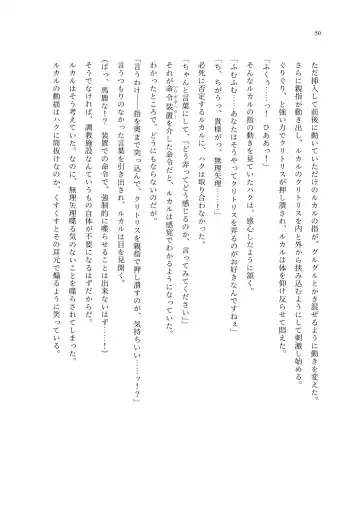 50
ただ挿入して前後に動いていただけのルカルの指が、グルグルとかき混ぜるように動きを変えた。
さらに親指が動き出し、ルカルのクリトリスを内と外から挟み込むようにして刺激し始める。
ぐりぐり、と強い力でクリトリスが押し潰され、ルカルは体を仰け反らせて悶えた。
「ふくぅ……っ！　ひああっ！」
そんなルカルの指の動きを見ていたハクは、感心したように頷く。
「ふむふむ……あなたはそうやってクリトリスを弄るのがお好きなんですねぇ」
「ち、ちがうっ、貴様がっ、無理矢理……！」
必死に否定するルカルに、ハクは取り合わなかった。
「ちゃんと言葉にして、『どう弄ってどう感じるのか、言ってみてください』」
それが命令装置を介した命令だと、ルカルは感覚でわかるようになっていた。
わかったところで、どうにもならないのだが。
「言うわけ――指を奥まで突っ込んで、クリトリスを親指で押し潰すのが、気持ちいい……っ！？」
言うつもりのなかった言葉を引き出され、ルカルは目を見開く。
（ばっ、馬鹿な！？　装置での命令で、強制的に喋らせることは出来ないはず……！）
そうでなければ、調教施設なんていうもの自体が不要になるはずだからだ。
ルカルはそう考えていた。なのに、無理矢理喋る気のないことを喋らされてしまった。
ルカルの動揺はハクに筒抜けなのか、くすくすとその耳元で煽るように笑っている。